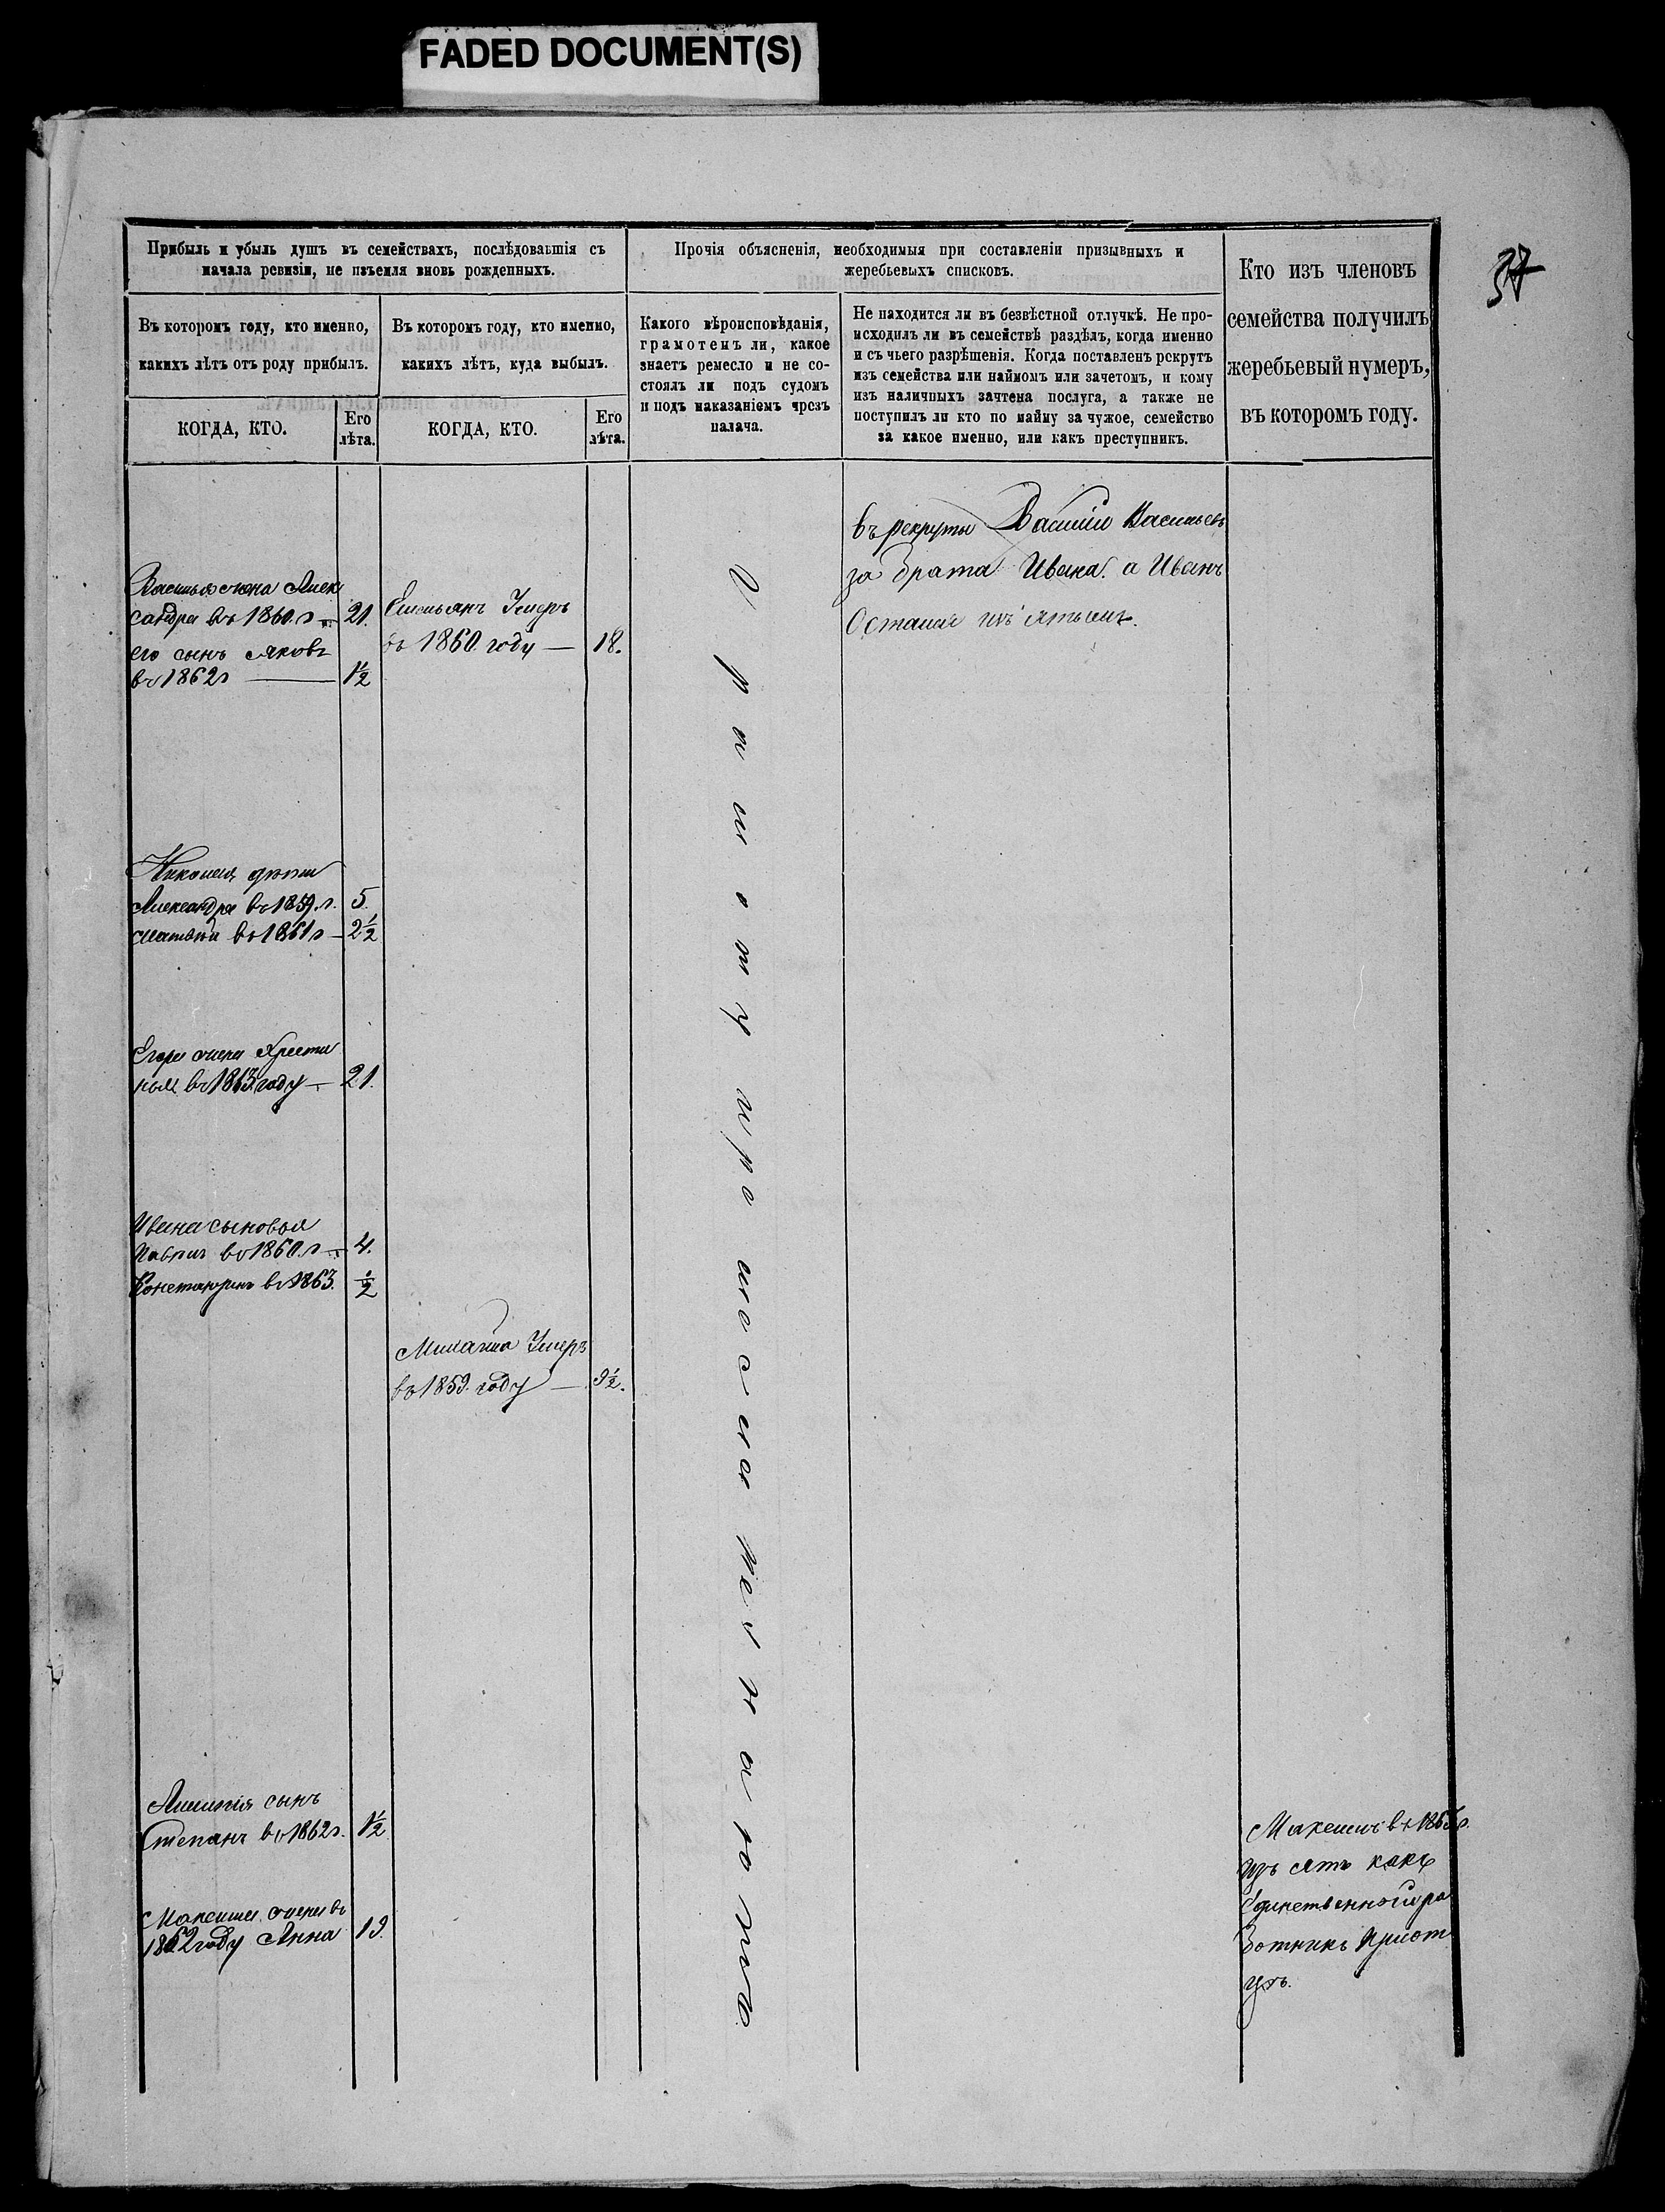 FADED DOCUMENT(S)
37
Прибыль и убыль душъ въ семействахъ, послѣдовавшія съ
начала ревизіи, не изъемля вновь рожденныхъ.
Въ которомъ году, кто именно,
какихъ лѣтъ отъ роду прибылъ.
КОГДА, КТО.
Его
лѣта.
Въ которомъ году, кто именно,
какихъ лѣтъ, куда выбылъ.
КОГДА, КТО.
Его
лѣта.
Прочія объясненія, необходимыя при составленіи призывныхъ и
жеребьевыхъ списковъ.
Какого вѣроисповѣданія,
грамотенъ ли, какое
знаетъ ремесло и не со-
стоялъ ли подъ судомъ
и подъ наказаніемъ чрезъ
палача.
Не находится ли въ безвѣстной отлучкѣ. Не про-
исходилъ ли въ семействѣ раздѣлъ, когда именно
и съ чьего разрѣшенія. Когда поставленъ рекрутъ
изъ семейства или наймомъ или зачетомъ, и кому
изъ наличныхъ зачтена послуга, а также не
поступилъ ли кто по найму за чужое, семейство
за какое именно, или какъ преступникъ.
Кто изъ членовъ
семейства получилъ
жеребьевый нумеръ,
въ которомъ году.
въ рекруты Василій Васильевъ
за брата Ивана. а Иванъ
Остался
Васильа жена Алек
сандра въ 1860. г 21.
его сынъ Яковъ
въ 1862 г 1½
Емельянъ Умеръ
въ 1860 году — 18.
Николая дѣти
Александра въ 1859. г. 5.
Матвѣй въ 1861 г 2½
Егора жена Христи
ния въ 1863 году — 21.
Ивана сыновья
Павелъ въ 1860. г 4.
Константинъ въ 1863. ½
Михайла Умеръ
въ 1859. году — 9½.
сынъ
Степанъ въ 1862 г. 1½
Максима жена въ
1862 году Анна 19.
Максимъ въ 186
изъ ятъ какъ
Единственной ра
ботникъ при от
цѣ.